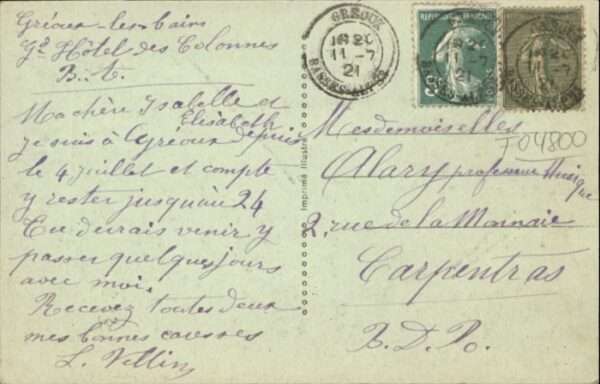 Gréoux-les-bains
Gd Hôtel des Colonnes
B. A.
Ma chère Isabelle et
Elisabeth
je suis à Gréoux depuis
le 4 juillet et compte
y rester jusqu'au 24
Tu devrais venir y
passer quelques jours
avec moi.
Recevez toutes deux
mes bonnes caresses
GREOUX
18 20
11 -7
21
BASSES-ALPES
Imprimé Illustré
Mesdemoiselles
T04800
Alary professeur Musique
2, rue de la Monnaie
Carpentras